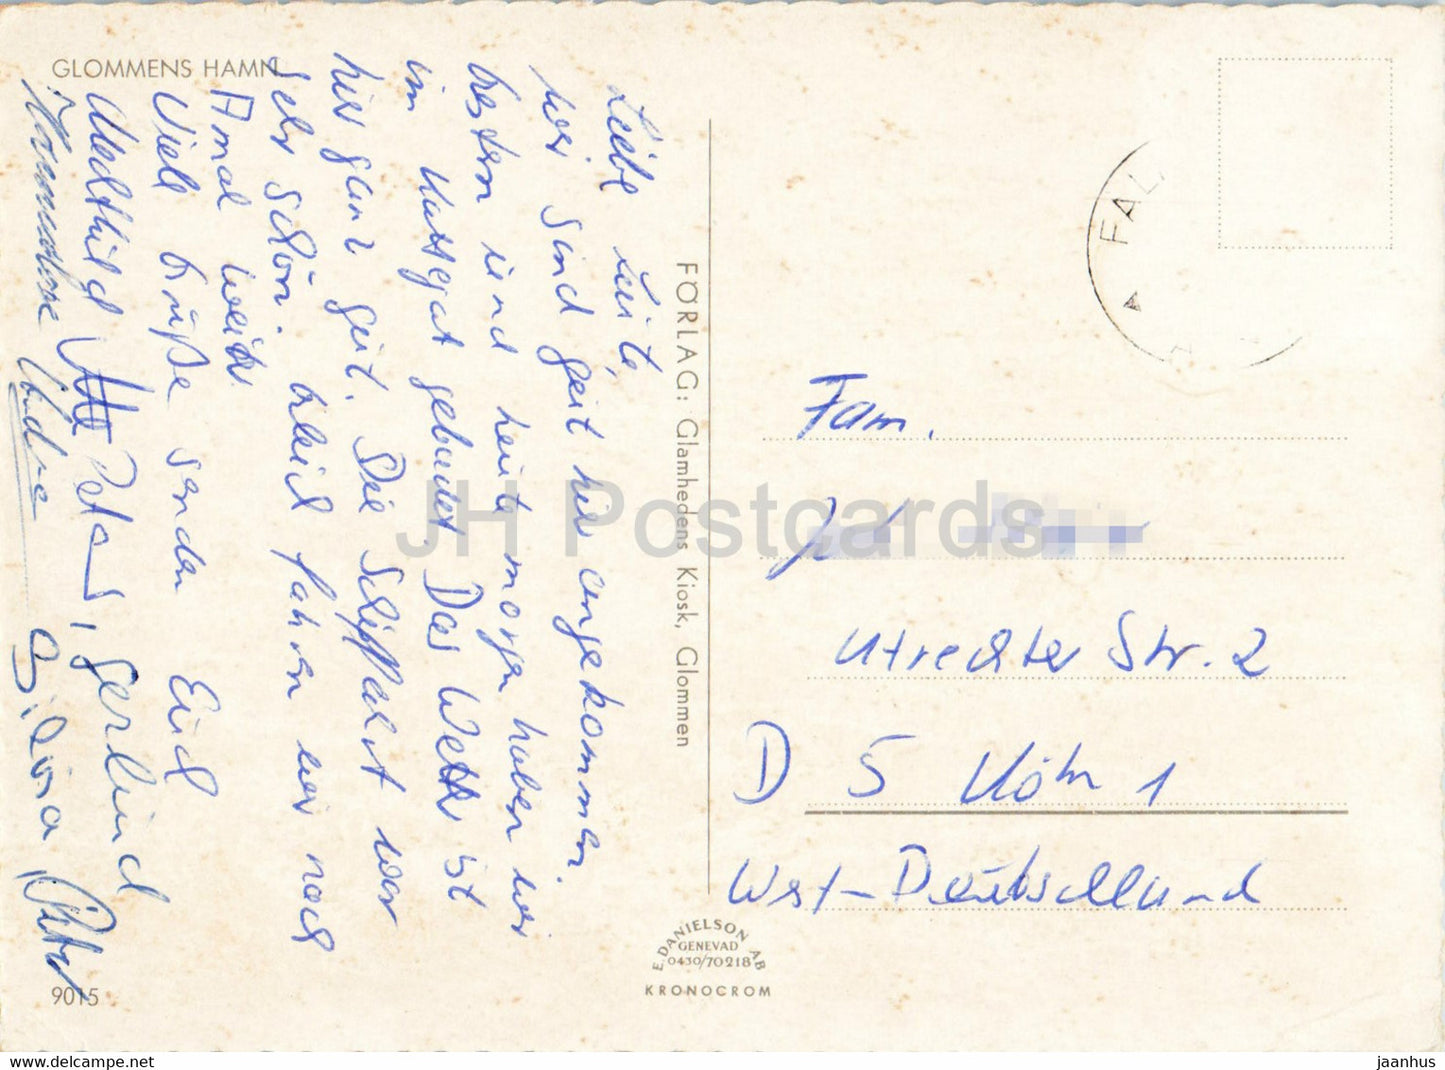 GLOMMENS HAMN
Liebe Leute,
wir sind gut hier angekommen.
Gestern und heute morgen haben wir
im Kattegat gebadet. Das Wetter ist
hier ganz gut. Die Schiffahrt war
sehr schön. Gleich fahren wir nach
Ämal weiter.
Viele Grüße senden Euch
Mechthild Peter, Gerlind
Andrea
Peter
FÖRLAG: Glamhedens Kiosk, Glommen
FAL
Fam.
Utrechter Str. 2
D 5 Köln 1
West-Deutschland
E. DANIELSON AB
GENEVAD
0430/70218
KRONOCROM
9015
JH Postcards
www.delcampe.net
jaanhus